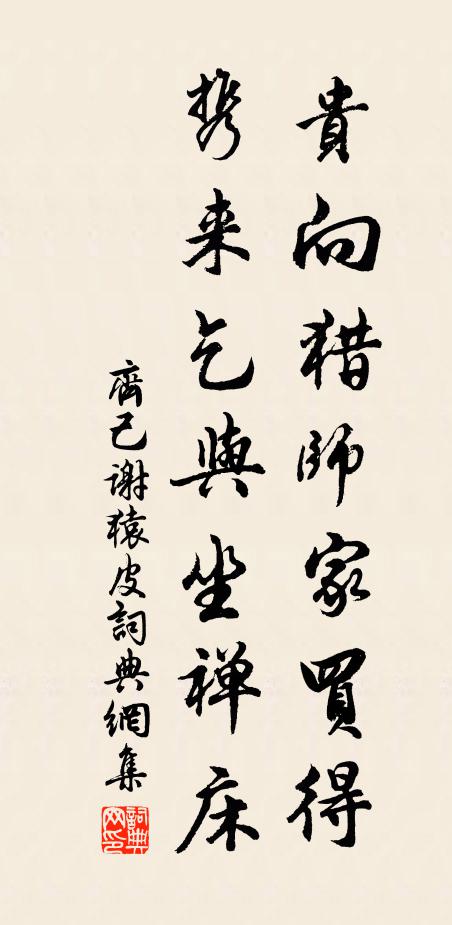 貴向猎師家買得
携来乞與坐禅床
齊己謝猿皮詞典網集
詞典網印